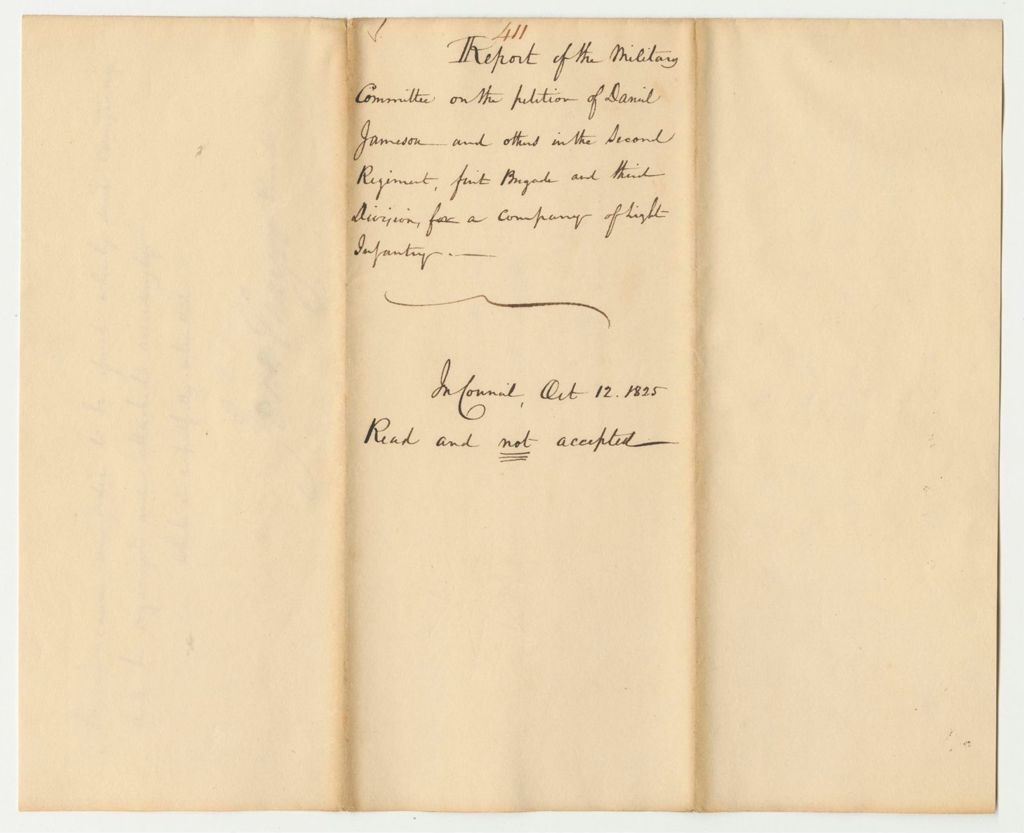 411
Report of the Military
Committee on the petition of Daniel
Jameson and others in the Second
Regiment, first Brigade and third
Division, for a company of Light
Infantry.
In Council, Oct 12. 1825
Read and not accepted